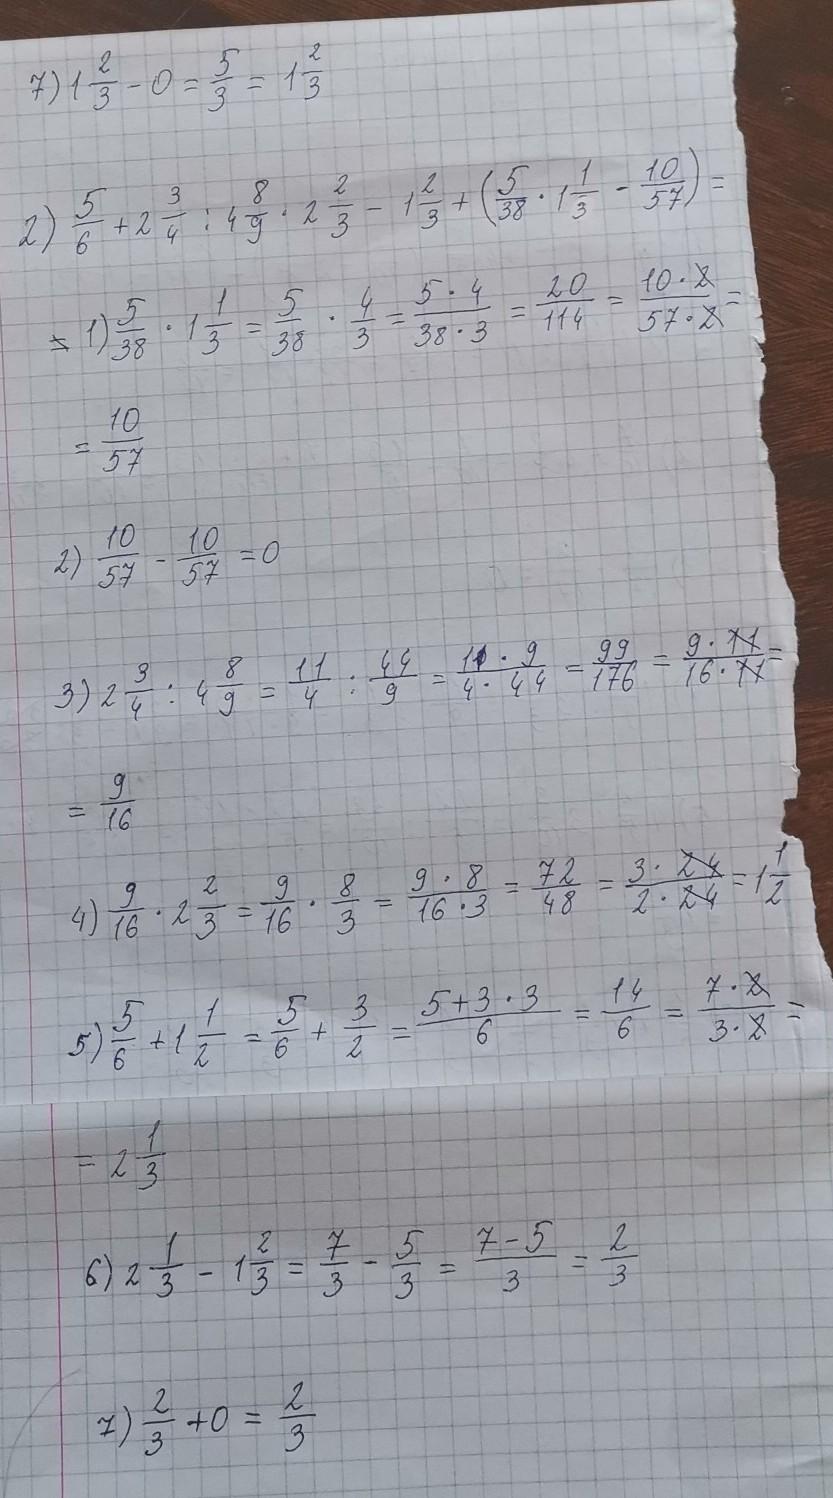 7) 1 2/3 - 0 = 5/3 = 1 2/3
2) 5/6 + 2 3/4 : 4 8/9 · 2 2/3 - 1 2/3 + (5/38 · 1 1/3 - 10/57) =
= 1) 5/38 · 1 1/3 = 5/38 · 4/3 = 5·4/38·3 = 20/114 = 10·2/57·2 =
= 10/57
2) 10/57 - 10/57 = 0
3) 2 3/4 : 4 8/9 = 11/4 : 44/9 = 11·9/4·44 = 99/176 = 9·11/16·11 =
= 9/16
4) 9/16 · 2 2/3 = 9/16 · 8/3 = 9·8/16·3 = 72/48 = 3·24/2·24 = 1 1/2
5) 5/6 + 1 1/2 = 5/6 + 3/2 = 5+3·3/6 = 14/6 = 7·2/3·2 =
= 2 1/3
6) 2 1/3 - 1 2/3 = 7/3 - 5/3 = 7-5/3 = 2/3
7) 2/3 + 0 = 2/3